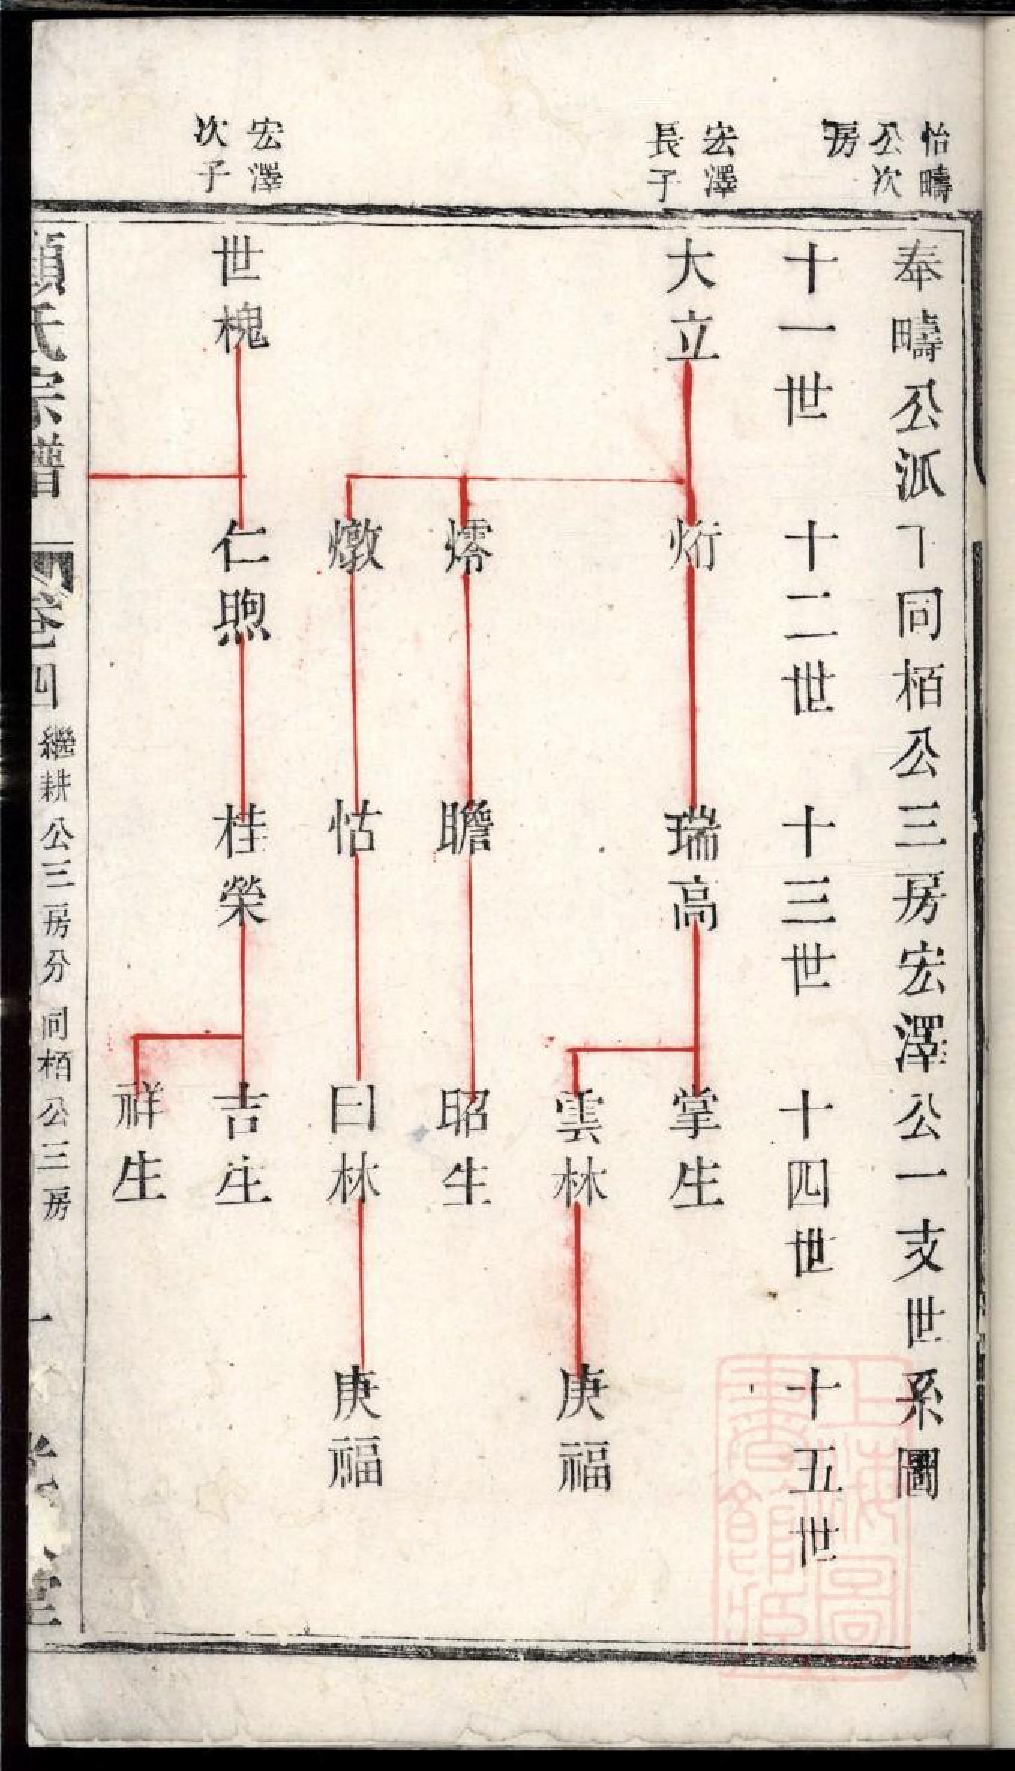 怡疇
公次
房
奉疇公派下同栢公三房宏澤公一支世系圖
十一世
十二世
十三世
十四世
十五世
宏澤
長子
大立
烆
瑞高
掌生
雲林
庚福
燯
瞻
昭生
燉
怙
曰林
庚福
宏澤
次子
世槐
仁煦
桂榮
吉生
祥生
顧氏宗譜
卷四
繼耕公三房分
同栢公三房
一
堂
上海圖
書館藏